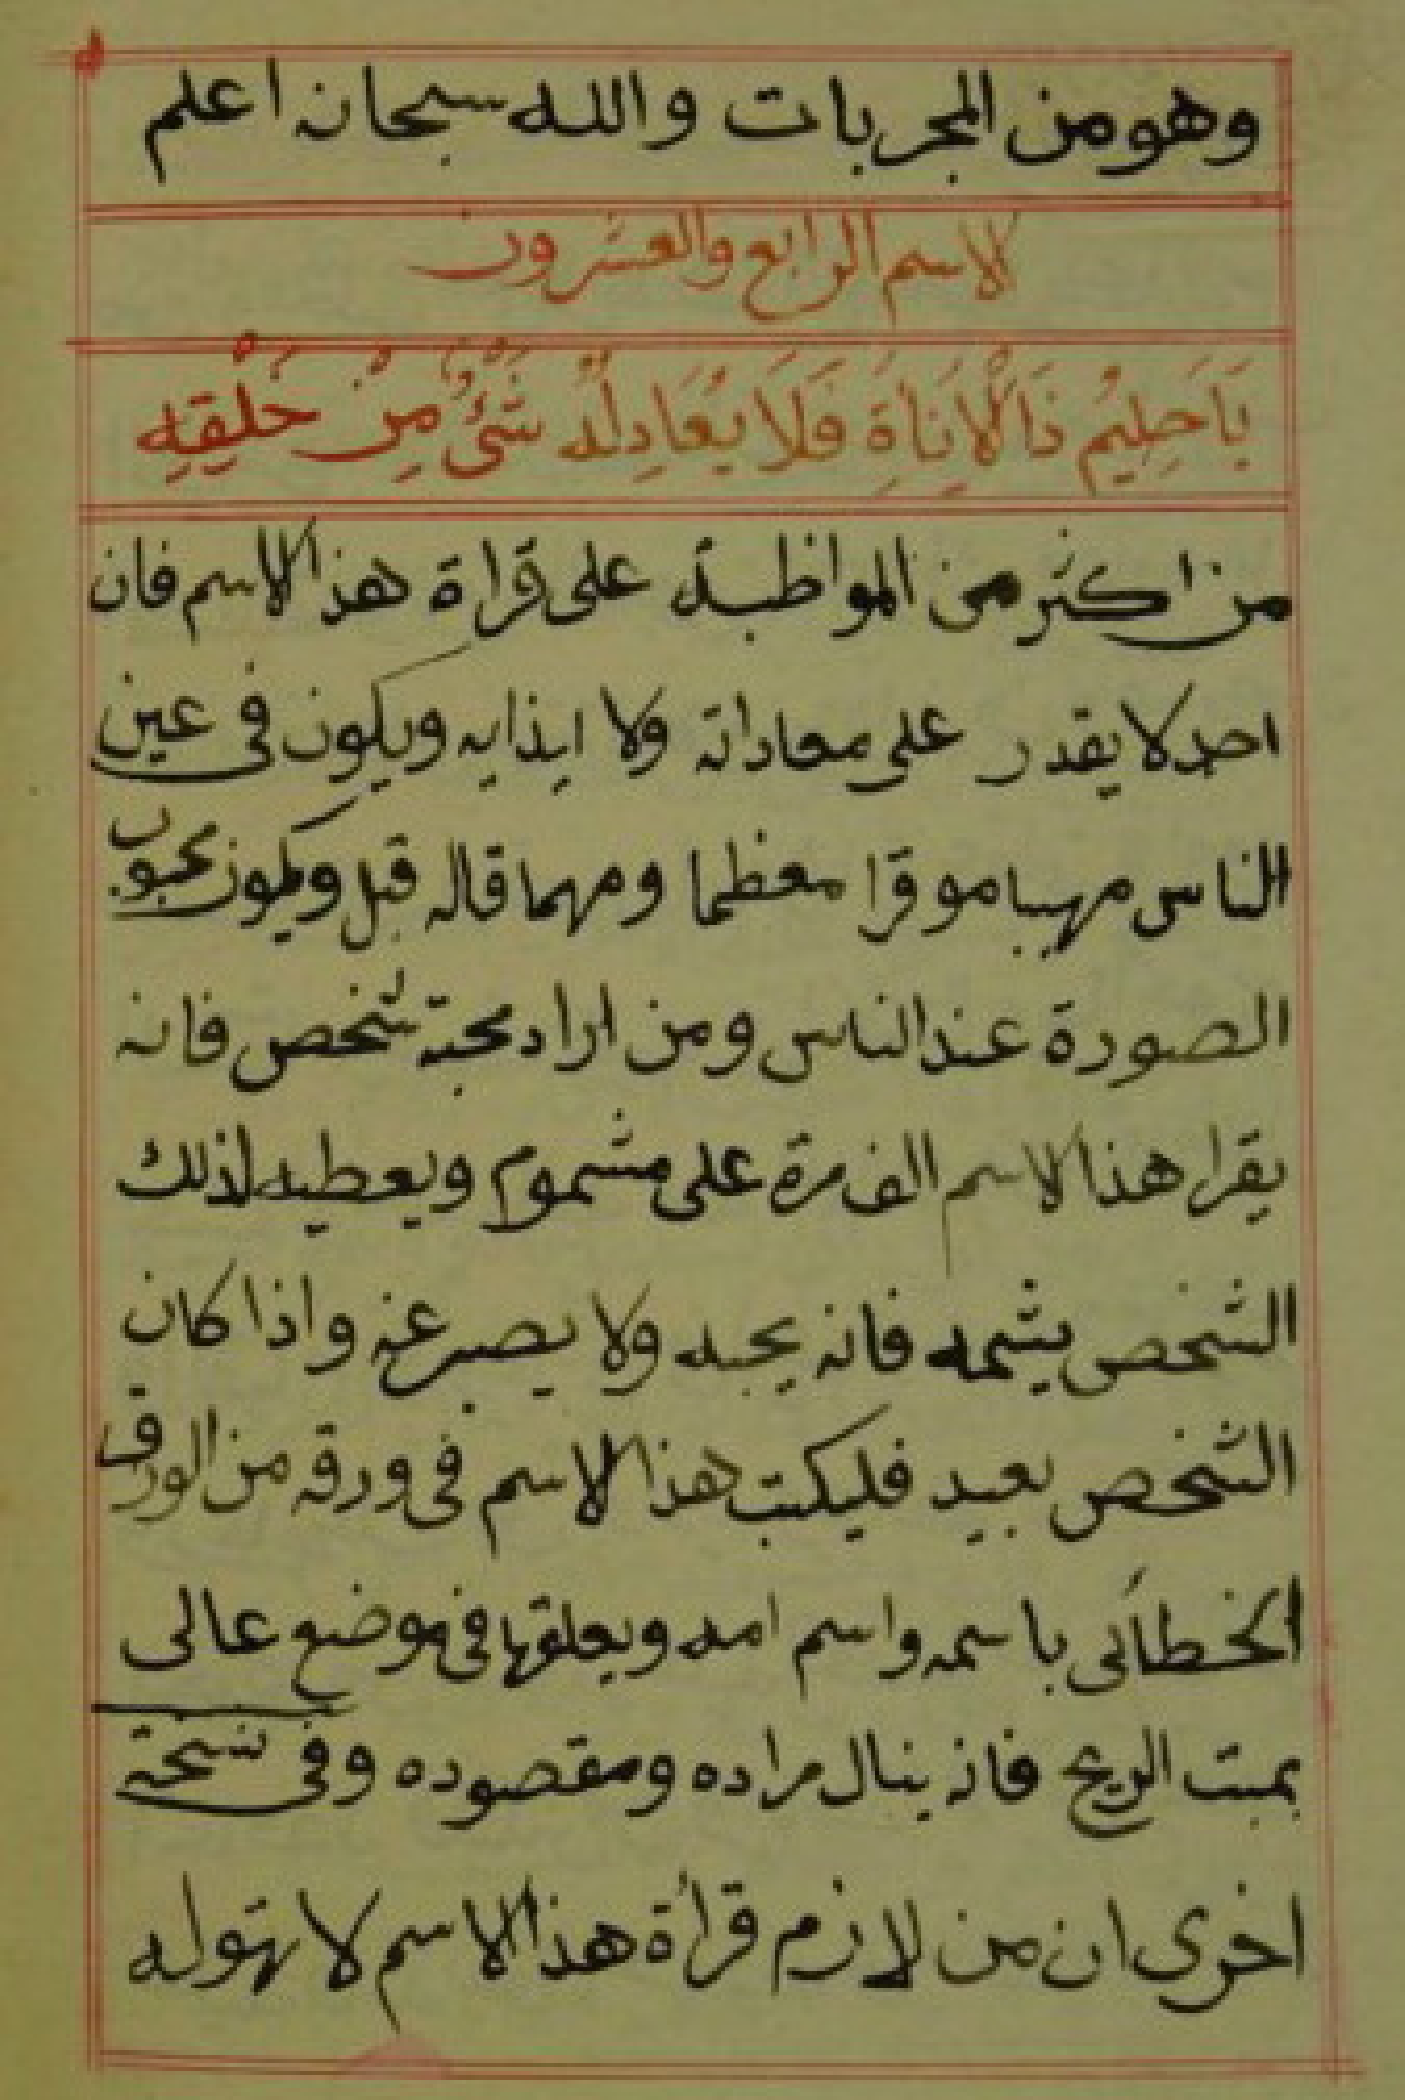 وهو من المجربات والله سبحانه اعلم
الاسم الرابع والعشرون
يَا حَلِيمُ ذَا الْاَنَاةِ فَلَا يُعَادِلُهُ شَىْءٌ مِنْ خَلْقِهِ
من اكثر من المواظبة على قراة هذا الاسم فان
احد لا يقدر على معاداته ولا ايذايه ويكون فى عين
الناس مهيبا موقرا معظما ومهما قاله قبل ويكون محبوب
الصورة عند الناس ومن اراد محبة شخص فانه
يقرا هذا الاسم الف مرة على مشموم ويعطيه لذلك
الشخص يشمه فانه يحبه ولا يصبر عنه واذا كان
الشخص بعيد فليكتب هذا الاسم فى ورقه من الورق
الخطائى باسمه واسم امه ويعلقها فى موضع عالى
بمبت الريح فانه ينال مراده ومقصوده وفى نسخة
اخرى ان من لازم قرأة هذا الاسم لا تهوله